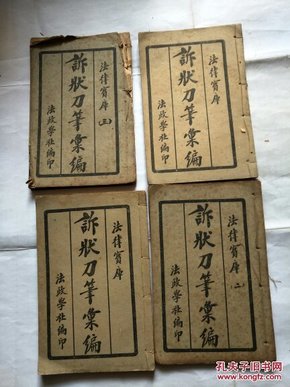 法律寶庫 (五)
訴狀刀筆彙編
法政學社編印
法律寶庫
訴狀刀筆彙編
法政學社編印
法律寶庫
訴狀刀筆彙編
法政學社編印
法律寶庫 (二)
訴狀刀筆彙編
法政學社編印
孔夫子旧书网